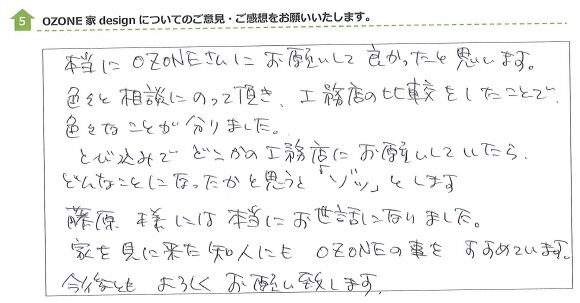 5 OZONE 家 design についてのご意見・ご感想をお願いいたします。
本当に OZONEさんに お願いして 良かったと 思います。
色々と 相談にのって頂き、工務店の比較をしたことで
色々なことが 分りました。
とび込みで どこかの工務店に お願いしていたら、
どんなことに なったかと思うと「ゾッ」とします
藤原 様には 本当に お世話になりました。
家を見に来た知人にも OZONEの事を すすめています。
今後とも よろしく お願い致します。